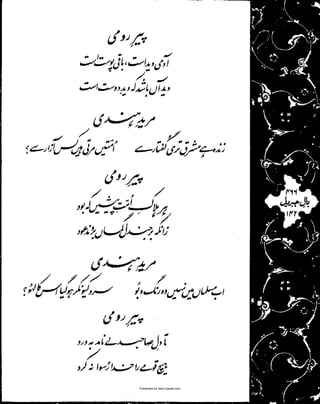 پیرِ رومی
آدمی دید است، باقی پوست است
دید آں باشد کہ دیدِ دوست است
مریدِ ہندی
زندہ ہے مشرق تری گفتار سے
امتیں مرتی ہیں کس آزار سے؟
پیرِ رومی
ہر ہلاکِ امتِ پیشیں کہ بود
زانکہ بر جندل گماں بردند عود
مریدِ ہندی
اب مسلماں میں نہیں وہ رنگ و بو
سرد کیونکر ہو گیا اس کا لہو؟
پیرِ رومی
تا دلِ صاحبدلے نامد بہ درد
ہیچ قومے را خدا رسوا نہ کرد
۴۶۶
بالِ جبریل
۱۴۲
Presented by www.ziaraat.com